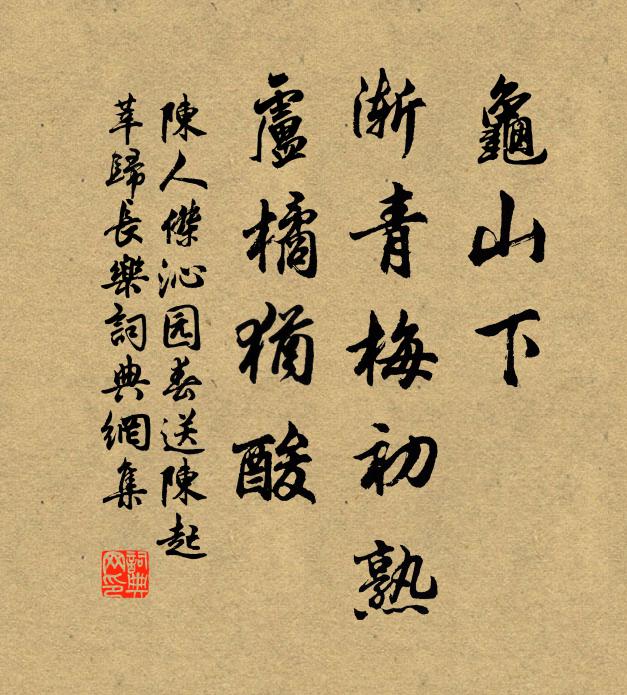 龜山下
漸青梅初熟
盧橘猶酸
陳人傑沁园春送陳起
莘歸長樂詞典網集
詞典
网印